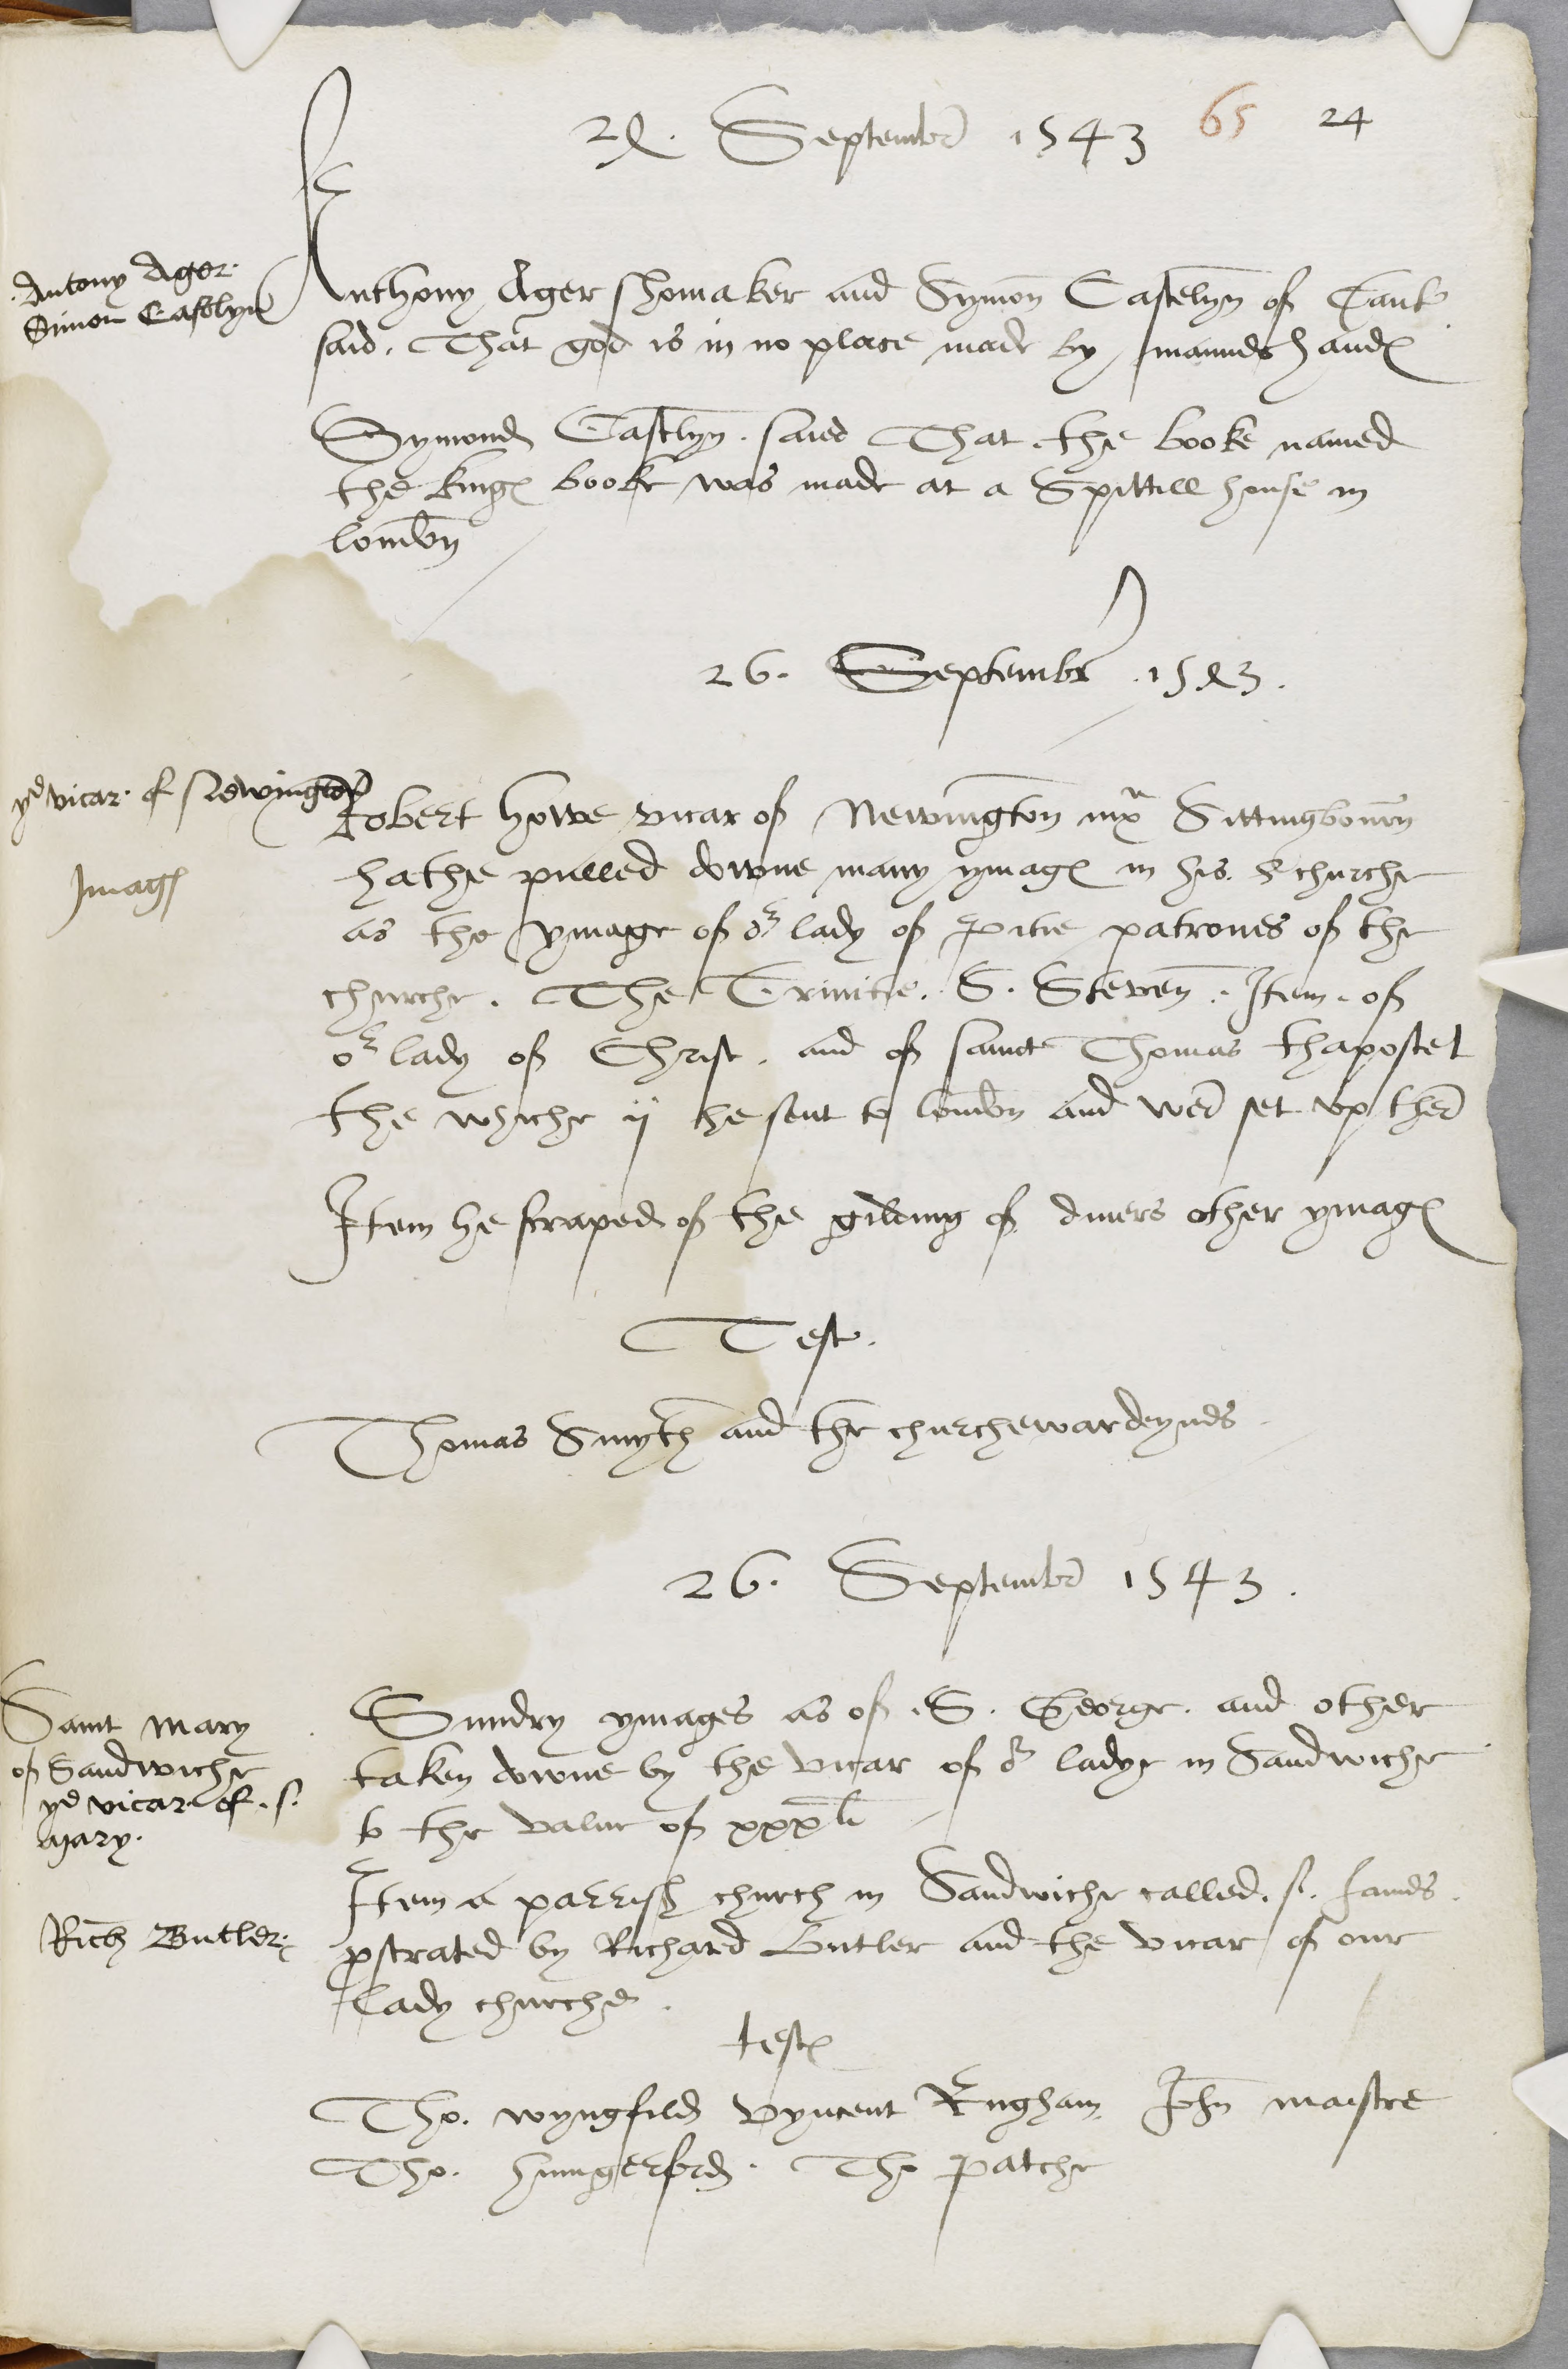 24. Septembr 1543 65 24
Antony Ager.
Simon Castlyn
Anthony Ager shomaker and Symon Castelyn of Cant
said. That god is in no place made by mannes hand
Symond Castlyn. saied That the booke named
the kings booke was made at a Spittill house in
london
26. Septembr .1543.
ye vicar. of Newington
Robert howe vicar of Newington nix Sittingborn
Images
hathe pulled downe many ymages in his churche
as the ymage of or lady of Pitie patrones of the
churche. The Trinitie. S. Steven. Item. of
or lady of Christ. and of sainct Thomas thapostel
the whiche ij he sent to london and wer set vp ther
Item he scraped of the gilding of divers other ymages
Test.
Thomas Smyth and the churchewardeynes
26. Septembr 1543.
Saint Mary
of Sandwiche
ye vicar of. S.
Mary.
Sundry ymages as of .S. George. and other
taken downe by the vicar of or ladye in Sandwiche
to the value of xxx li
Item a parrish church in Sandwiche called. S. James.
Rich Butler.
prostrated by Richard Butler and the vicar of our
lady churche.
test
Tho. wyngfild Vyncent Engham John maistre
Tho. hungerford. Tho patche